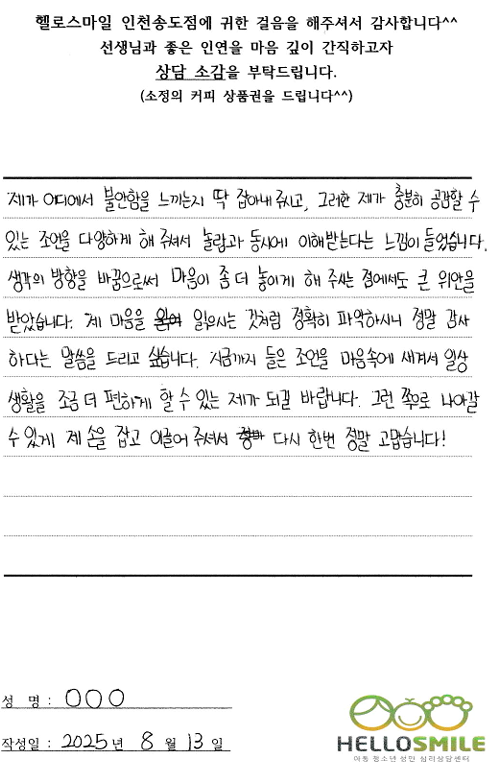 헬로스마일 인천송도점에 귀한 걸음을 해주셔서 감사합니다^^
선생님과 좋은 인연을 마음 깊이 간직하고자
상담 소감을 부탁드립니다.
(소정의 커피 상품권을 드립니다^^)
제가 어디에서 불안함을 느끼는지 딱 잡아내 주시고, 그러한 제가 충분히 공감할 수
있는 조언을 다양하게 해 주셔서 놀람과 동시에 이해받는다는 느낌이 들었습니다.
생각의 방향을 바꿈으로써 마음이 좀 더 놓이게 해 주시는 점에서도 큰 위안을
받았습니다. 제 마음을 읽으시는 것처럼 정확히 파악하시니 정말 감사
하다는 말씀을 드리고 싶습니다. 지금까지 들은 조언을 마음속에 새겨서 일상
생활을 조금 더 편하게 할 수 있는 제가 되길 바랍니다. 그런 쪽으로 나아갈
수 있게 제 손을 잡고 이끌어 주셔서 다시 한번 정말 고맙습니다!
성 명 : OOO
작성일 : 2025년 8월 13일
HELLOSMILE
아동 청소년 성인 심리상담센터